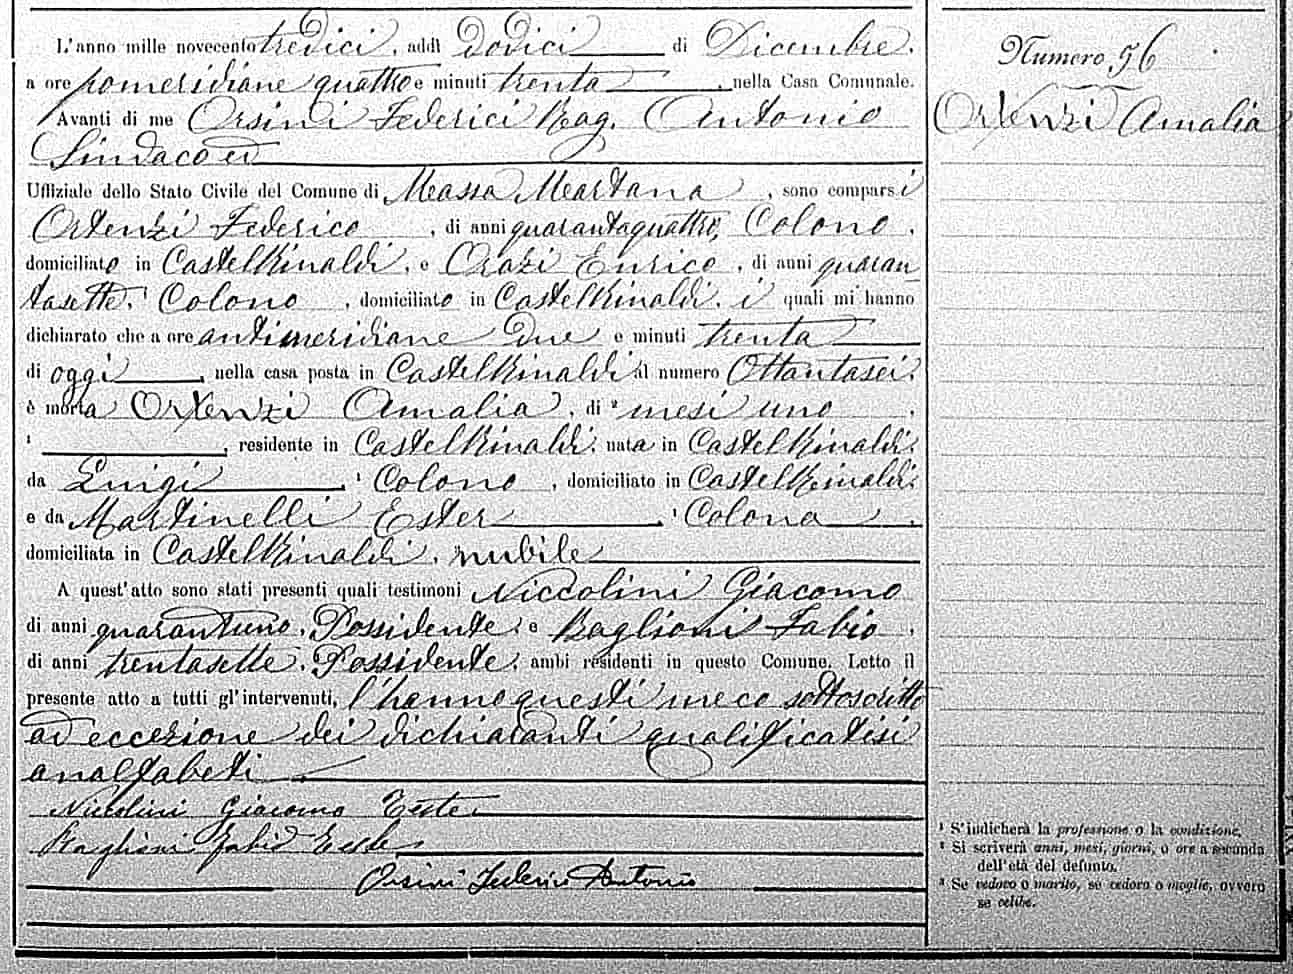 L'anno mille novecento tredici, addì Dodici di Dicembre,
a ore pomeridiane quattro e minuti trenta, nella Casa Comunale.
Avanti di me Orsini Federici Rag. Antonio
Sindaco ed
Uffiziale dello Stato Civile del Comune di Massa Martana, sono comparsi
Ortenzi Federico, di anni quarantaquattro, Colono,
domiciliato in CastelRinaldi, e Orazi Enrico, di anni quaran
tasette, ¹ Colono, domiciliato in CastelRinaldi, i quali mi hanno
dichiarato che a ore antimeridiane Due e minuti trenta
di oggi, nella casa posta in CastelRinaldi al numero Ottantasei,
è morta Ortenzi Amalia, di ² mesi uno,
¹ , residente in CastelRinaldi, nata in CastelRinaldi,
da Luigi, ¹ Colono, domiciliato in CastelRinaldi,
e da Martinelli Ester, ¹ Colona,
domiciliata in CastelRinaldi, nubile
A quest'atto sono stati presenti quali testimoni Niccolini Giacomo
di anni quarantuno, Possidente, e Baglioni Fabio,
di anni trentasette, Possidente, ambi residenti in questo Comune. Letto il
presente atto a tutti gl'intervenuti, l'hanno questi meco sottoscritto
ad eccezione dei dichiaranti qualificatisi
analfabeti
Niccolini Giacomo Teste
Baglioni Fabio Teste
Orsini Federici Antonio
Numero 56
Ortenzi Amalia
¹ S'indicherà la professione o la condizione.
² Si scriverà anni, mesi, giorni, o ore a seconda
dell'età del defunto.
³ Se vedovo o marito, se vedova o moglie, ovvero
se celibe.